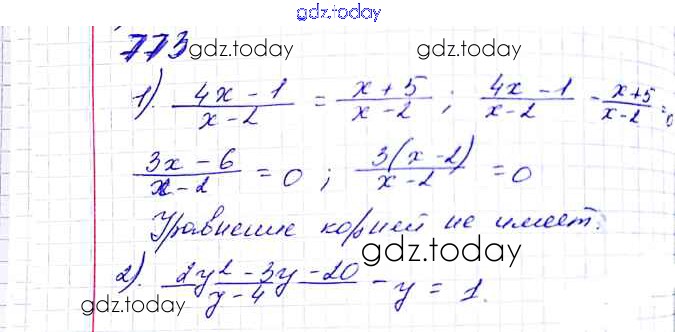 gdz.today
773 gdz.today gdz.today
1). (4x - 1)/(x - 2) = (x + 5)/(x - 2) ; (4x - 1)/(x - 2) - (x + 5)/(x - 2) = 0
(3x - 6)/(x - 2) = 0 ; (3(x - 2))/(x - 2) = 0
Уравнение корней не имеет.
gdz.today
2). (2y² - 3y - 20)/(y - 4) - y = 1.
gdz.today gdz.today